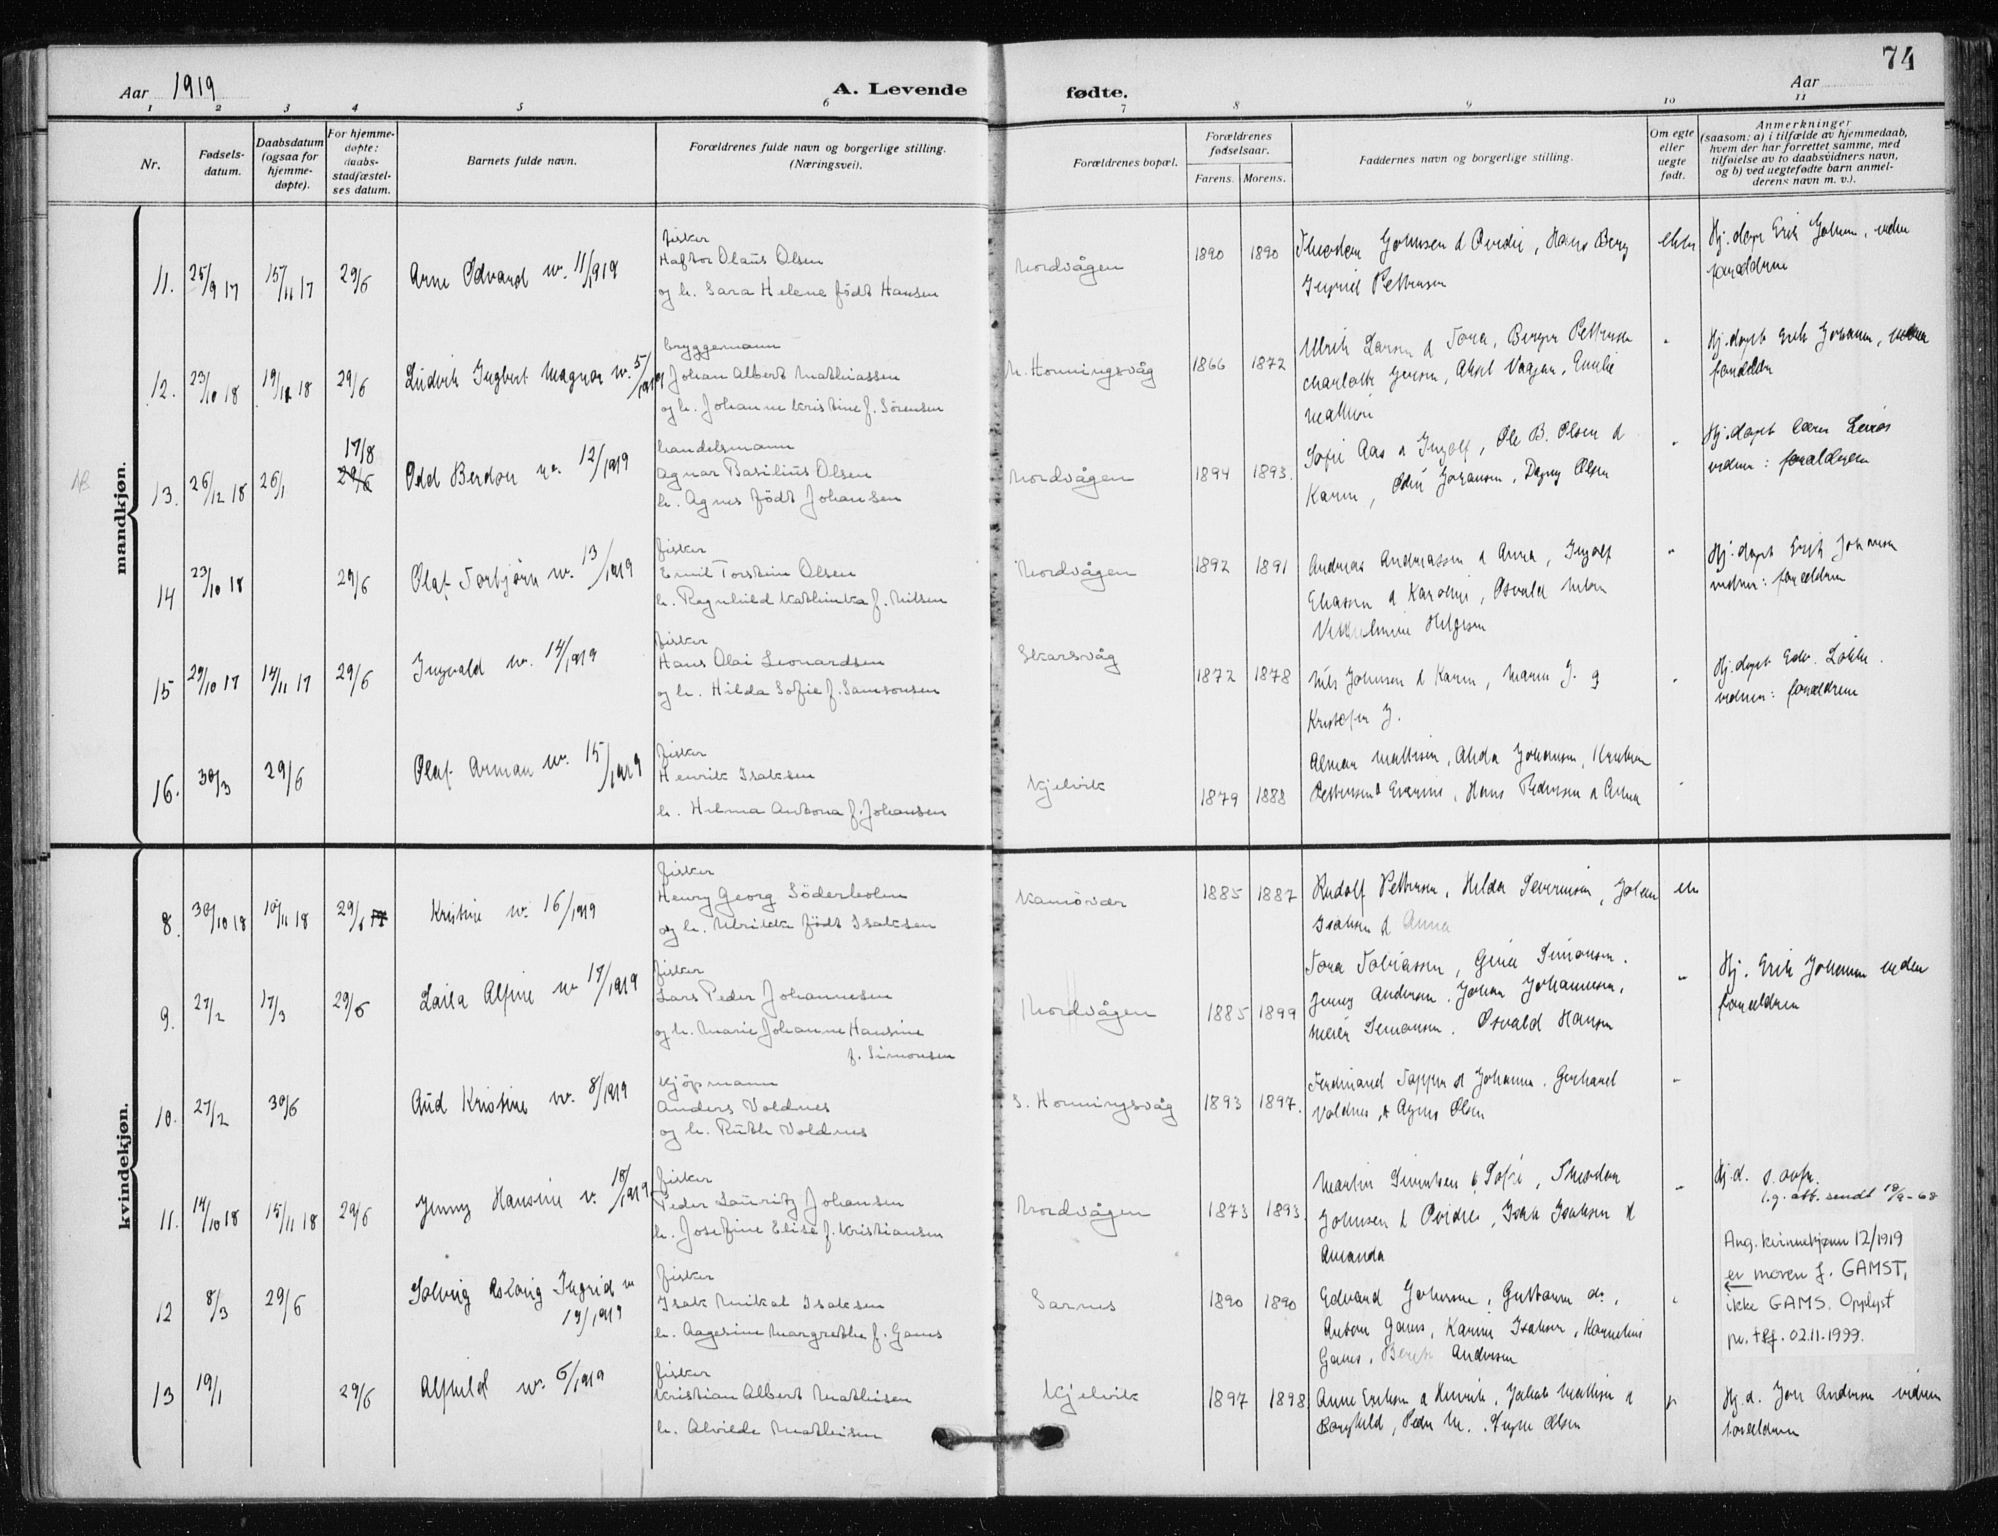 74
Aar 1919
A. Levende
fødte.
Aar
1 2 3 4 5 6 7 8 9 10 11
Nr.
Fødsels-
datum.
Daabsdatum
(ogsaa for
hjemme-
døpte).
For hjemme-
døpte:
daabs-
stadfæstel-
ses datum.
Barnets fulde navn.
Forældrenes fulde navn og borgerlige stilling.
(Næringsvei).
Forældrenes bopæl.
Forældrenes
fødselsaar.
Farens. Morens.
Faddernes navn og borgerlige stilling.
Om egte
eller
uegte
født.
Anmerkninger
(saasom: a) i tilfælde av hjemmedaab,
hvem der har forrettet samme, med
tilføielse av to daabsvidners navn,
og b) ved uegtefødte barn anmel-
derens navn m. v.).
mandkjøn.
11. 25/9 17 15/11 17 29/6 Arne Edvard nr. 11/1919
fisker
Haftor Olaüs Olsen
og h. Sara Helene født Hansen
Nordvågen 1890 1890
Johnsen & Ovidie, Hans Berg
Ingrid Pettersen
ekte
Hj. døpt Erik Johnsen, vidner
forældrene
12. 23/10 18 19/12 18 29/6 Ludvik Ingbert Magnor nr. 5/1919
bryggemann
Johan Albert Mathiassen
og h. Johanne Kristine f. Sörensen
N. Honningsvåg 1866 1872
Ulrik Larsen & Tora, Berger Pettersen
Charlotte Jensen, Aksel Vaagan, Emilie
Mathisen
" Hj. døpt Erik Johansen, vidner
forældrene
13. 26/12 18 26/1 17/8 29/6 Odd Berdon nr. 12/1919
handelsmann
Agnar Basilius Olsen
h. Agnes født Johansen
Nordvågen 1894 1893.
Sofie Aas & Ingolf, Ole B. Olsen &
Karen, Johansen, Dagny Olsen
" Hj. døpt lærer
vidner: forældrene
14 23/10 18 29/6 Olaf Torbjörn nr. 13/1919
fisker
Emil Torstein Olsen
h. Ragnhild Kathinka f. Nilsen
Nordvågen 1892 1891
Andreas Andreassen & Anna, Ingolf
Eliassen & Karoline, Osvald
Vilhelmine Helgesen
" Hj. døpt Erik Johansen
vidner: forældrene
15 29/10 17 14/11 17 29/6 Ingvald nr. 14/1919
fisker
Hans Olai Leonardsen
og h. Hilda Sofie f. Samsonsen
Skarsvåg 1872 1878
Nils Johnsen & Karen, Maren J. g
Kristofer J.
" Hj. døpt Edv. Løkke.
vidner: forældrene
16. 30/3 29/6 Olaf Arman nr. 15/1919
fisker
Henrik Isaksen
h. Hilma Antona f. Johansen
Kjelvik 1879 1888
Mathisen, Alida Johansen,
Pettersen & Evarine, Hans Pedersen & Anna
"
kvindekjøn.
8. 30/10 18 10/11 18 29/6 Kristine nr. 16/1919
fisker
Henry Georg Söderholm
og h. Ulrikke født Isaksen
Kamöver 1885 1887
Rudolf Pettersen, Hilda Severinsen, Johan
Isaksen & Anna
ekte
9. 27/2 17/3 29/6 Laila Alfine nr. 17/1919
fisker
Lars Peder Johannesen
og h. Marie Johanne Hansine
f. Simonsen
Nordvågen 1885 1899
Tora Tobiassen, Gina Simonsen.
Jenny Andersen. Johan Johannesen,
Simonsen. Osvald Hansen
" Hj. Erik Johansen vidner
forældrene
10. 27/2 30/6 Aud Kristine nr. 8/1919
Kjöpmann
Anders Voldnes
og h. Ruth Voldnes
S. Honningsvåg 1893 1897.
Ferdinand & Johanna. Gerhard
Voldnes & Agnes Olsen
"
11. 14/10 18 15/11 18 29/6 Jenny Hansine nr. 18/1919
fisker
Peder Lauritz Johansen
h. Josefine Elise f. Kristiansen
Nordvågen 1873 1893.
Martin Sivertsen & Sofie,
Johnsen & Ovidie, Isak Isaksen &
Amanda
" Hj. d. s. ovfr.
l.g. att. sendt 18/9-68
12 8/3 29/6 Solveig Aslaug Ingrid nr
19/1919
fisker
Isak Mikal Isaksen
h. Aagesine Margrethe f. Gams
Sarnes 1890 1890
Edvard Johnsen, Gustava do.,
Antone Gams, Karine Isaksen, Kornelius
Gams, Andersen
"
Ang. kvinnekjønn 12/1919
er moren f. GAMST,
ikke GAMS. Opplyst
pr. tlf. 02.11.1999.
13 19/1 29/6 Alfhild nr. 6/1919
fisker
Kristian Albert Mathisen
h. Alvilde Mathisen
Kjelvik 1897 1898
Anne Eriksen & Henrik, Jakob Mathisen &
Borghild, Peder M., Signe Olsen
"
Hj. d. Jon Andersen vidner
forældrene